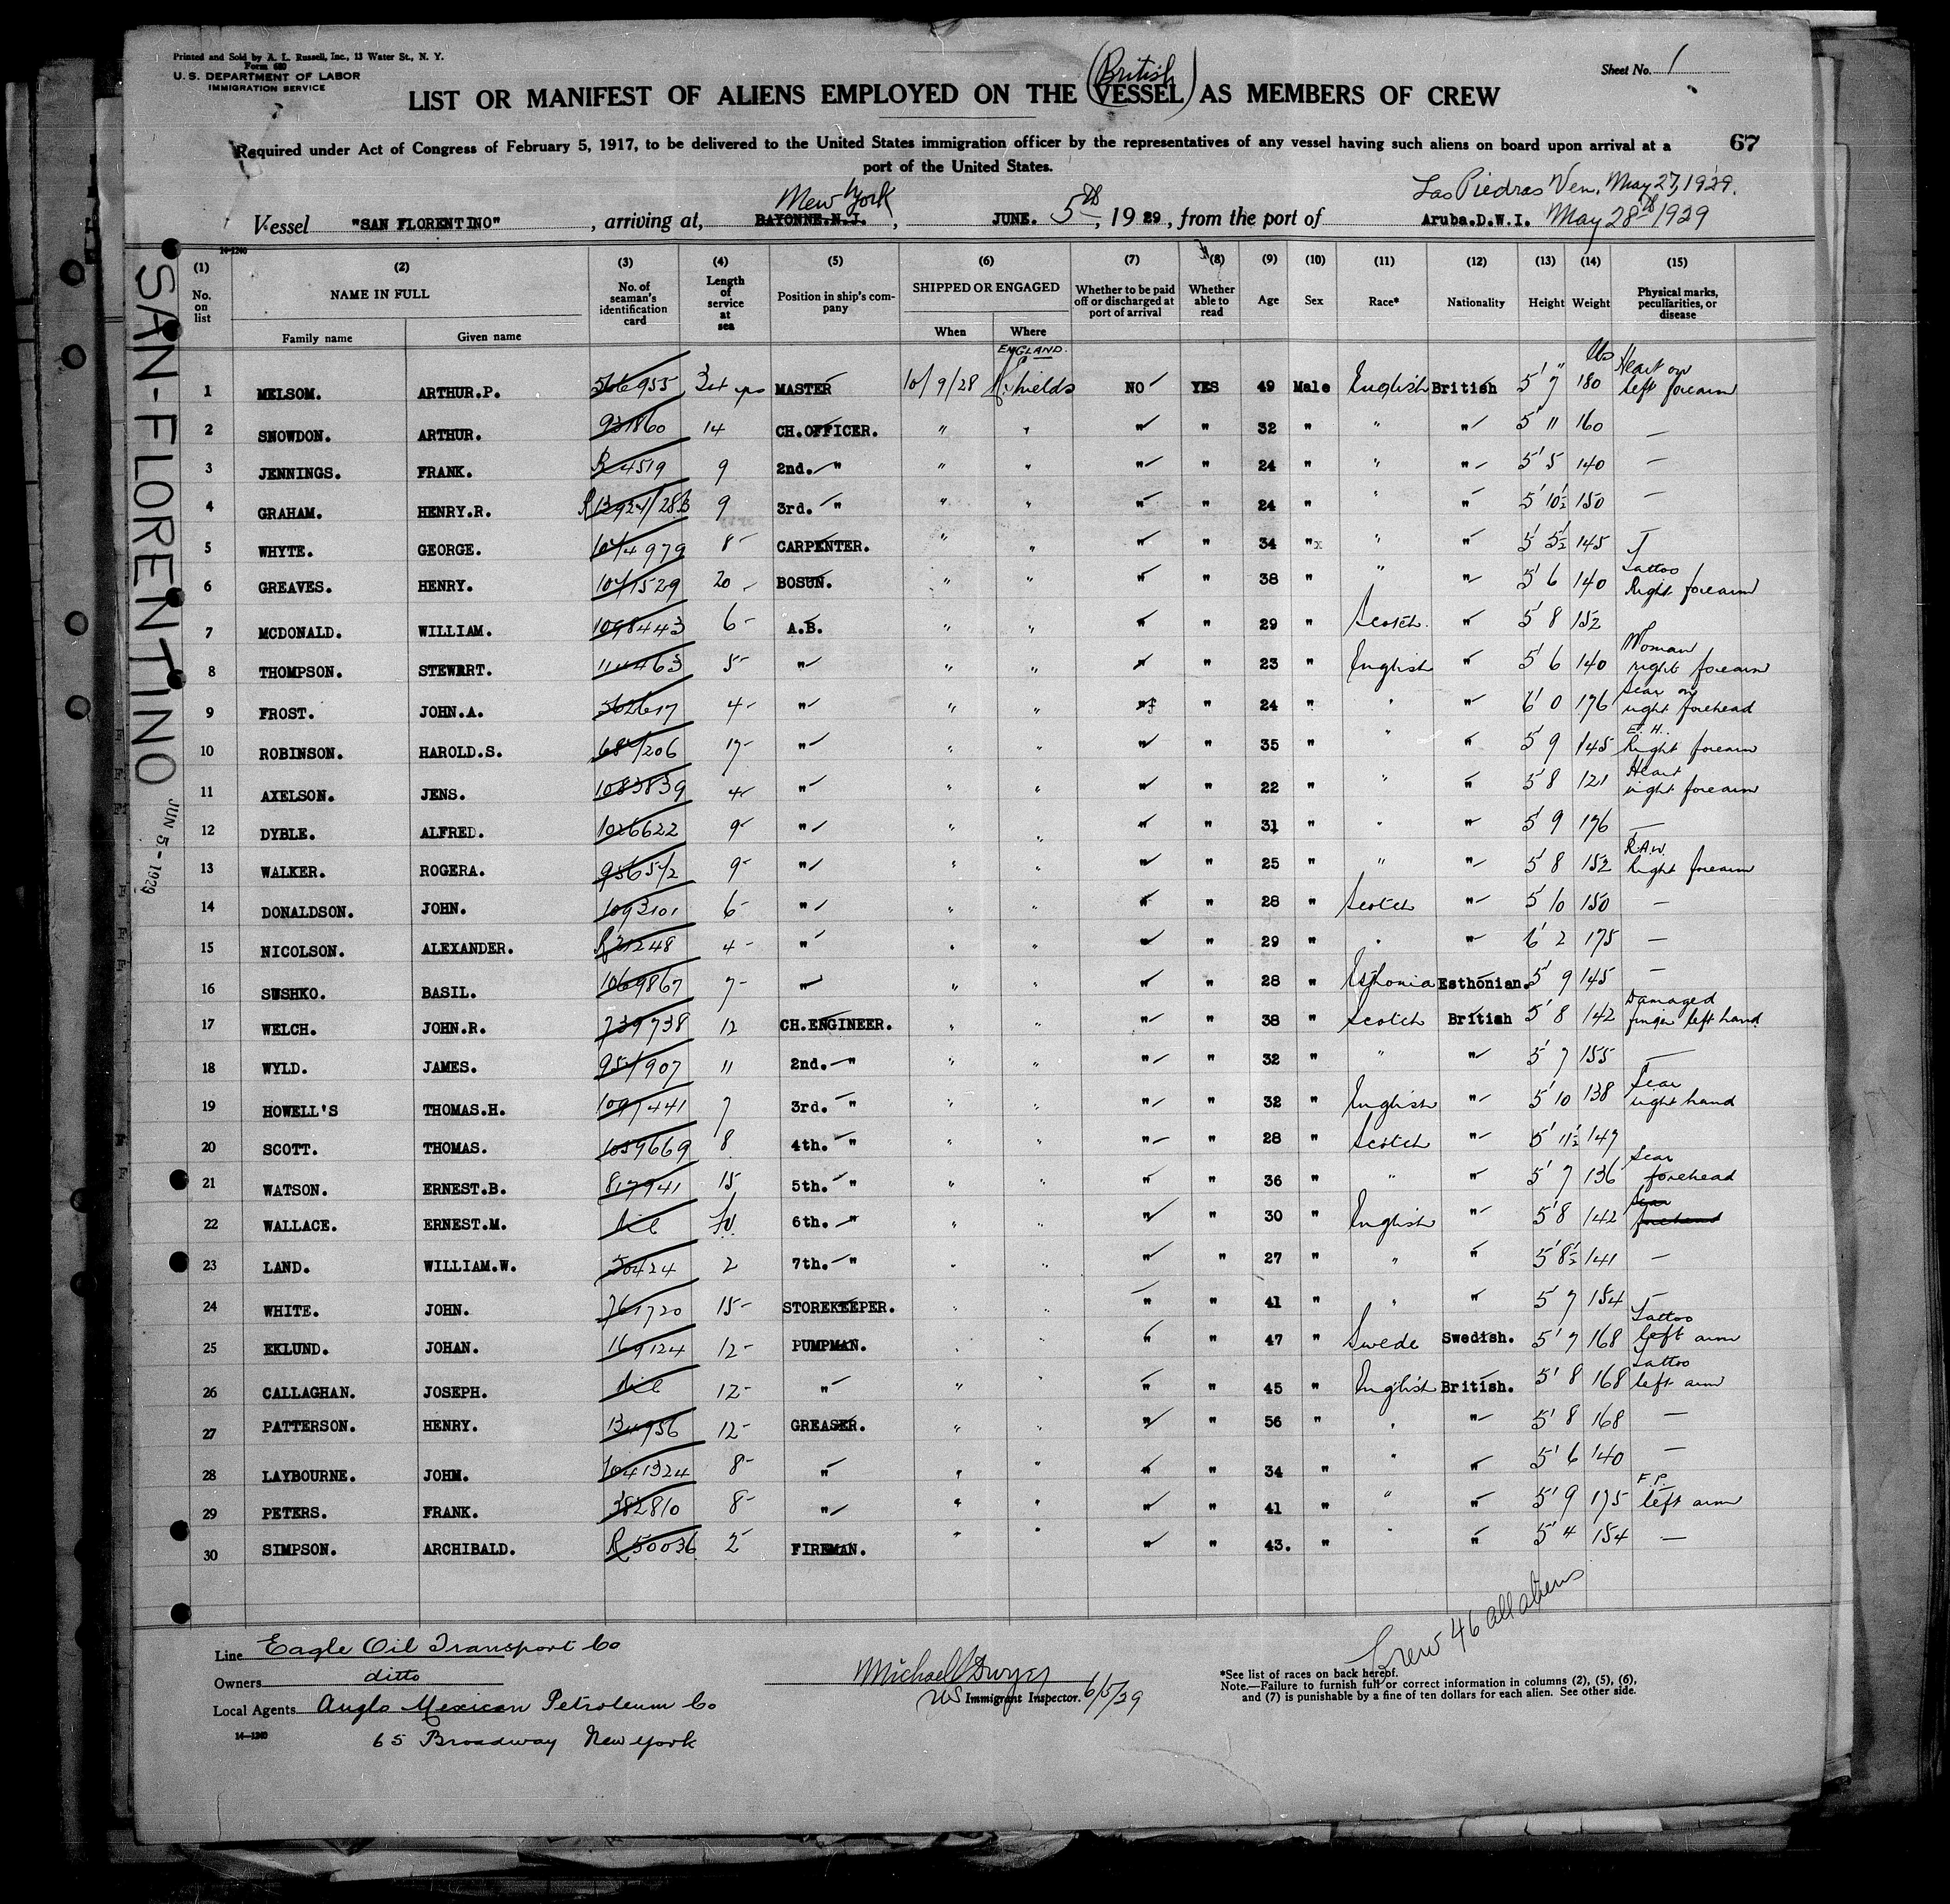 Printed and Sold by A. L. Russell, Inc., 13 Water St., N. Y.
Form 680
U. S. DEPARTMENT OF LABOR
IMMIGRATION SERVICE
Sheet No. 1
(British
LIST OR MANIFEST OF ALIENS EMPLOYED ON THE (VESSEL) AS MEMBERS OF CREW
Required under Act of Congress of February 5, 1917, to be delivered to the United States immigration officer by the representatives of any vessel having such aliens on board upon arrival at a
port of the United States.
67
New York Las Piedras Ven. May 27, 1929.
Vessel "SAN FLORENTINO", arriving at, BAYONNE.N.J., JUNE. 5th, 1929, from the port of Aruba.D.W.I. May 28th 1929
14-1240
(1) (2) (3) (4) (5) (6) (7) (8) (9) (10) (11) (12) (13) (14) (15)
No. on list NAME IN FULL No. of seaman's identification card Length of service at sea Position in ship's company SHIPPED OR ENGAGED Whether to be paid off or discharged at port of arrival Whether able to read Age Sex Race* Nationality Height Weight Physical marks, peculiarities, or disease
Family name Given name When Where
ENGLAND.
lbs
1 MELSOM. ARTHUR.P. 566955 34 yrs MASTER 10/9/28 N. Shields NO YES 49 Male English British 5' 7" 180 Heart on left forearm
2 SNOWDON. ARTHUR. 931860 14 CH.OFFICER. " " " " 32 " " " 5' 11 160 —
3 JENNINGS. FRANK. R 4519 9 2nd. " " " " " 24 " " " 5' 5 140 —
4 GRAHAM. HENRY.R. 9 3rd. " " " " " 24 " " " 5' 10½ 150 —
5 WHYTE. GEORGE. 1014979 8 CARPENTER. " " " " 34 " " " 5 5½ 145 —
6 GREAVES. HENRY. 1011529 20 BOSUN. " " " " 38 " " " 5' 6 140 Tattoo Right forearm
7 MCDONALD. WILLIAM. 1098443 6 A.B. " " " " 29 " Scotch. " 5' 8 152
8 THOMPSON. STEWART. 5 " " " " " 23 " English " 5' 6 140 Woman right forearm
9 FROST. JOHN.A. 562617 4 " " " " " 24 " " " 6' 0 176 Scar on right forehead
10 ROBINSON. HAROLD.S. 17 " " " " " 35 " " " 5 9 145 E. H. Right forearm
11 AXELSON. JENS. 1083839 4 " " " " " 22 " " " 5 8 121 Heart right forearm
12 DYBLE. ALFRED. 1026622 9 " " " " " 31 " " " 5' 9 176 —
13 WALKER. ROGERA. 9 " " " " " 25 " " " 5' 8 152 R.A.W. Right forearm
14 DONALDSON. JOHN. 1093101 6 " " " " " 28 " Scotch " 5 10 150 —
15 NICOLSON. ALEXANDER. R 21248 4 " " " " " 29 " " " 6' 2 175 —
16 SWSHKO. BASIL. 1069867 7 " " " " " 28 " Esthonia Esthonian. 5' 9 145 —
17 WELCH. JOHN.R. 739738 12 CH.ENGINEER. " " " " 38 " Scotch British 5' 8 142 Damaged finger left hand
18 WYLD. JAMES. 951907 11 2nd. " " " " " 32 " " " 5' 7 155 —
19 HOWELL'S THOMAS.H. 1097441 7 3rd. " " " " " 32 " English " 5' 10 138 Scar right hand
20 SCOTT. THOMAS. 1059669 8 4th. " " " " " 28 " Scotch " 5' 11½ 147
21 WATSON. ERNEST.B. 817941 15 5th. " " " " " 36 " " " 5' 7 136 Scar forehead
22 WALLACE. ERNEST.M. Nil 6th. " " " " " 30 " English " 5' 8 142 Scar forehead
23 LAND. WILLIAM.W. 50424 2 7th. " " " " " 27 " " " 5' 8½ 141 —
24 WHITE. JOHN. 761720 15 STOREKEEPER. " " " " 41 " " " 5' 7 154 —
25 EKLUND. JOHAN. 169124 12 PUMPMAN. " " " " 47 " Swede Swedish. 5' 7 168 Tattoo left arm
26 CALLAGHAN. JOSEPH. Nil 12 " " " " " 45 " English British. 5' 8 168 Tattoo left arm
27 PATTERSON. HENRY. 134956 12 GREASER. " " " " 56 " " " 5' 8 168 —
28 LAYBOURNE. JOHN. 1041324 8 " " " " " 34 " " " 5' 6 140 —
29 PETERS. FRANK. 382810 8 " " " " " 41 " " " 5' 9 175 F.P. left arm
30 SIMPSON. ARCHIBALD. R 50036 2 FIREMAN. " " " " 43. " " " 5' 4 154 —
SAN-FLORENTINO
JUN 5 - 1929
Crew 46 all aliens
Line Eagle Oil Transport Co
Owners ditto
Local Agents Anglo Mexican Petroleum Co
65 Broadway New York
14-1240
Michael J Dwyer
US Immigrant Inspector. 6/5/29
*See list of races on back hereof.
Note.—Failure to furnish full or correct information in columns (2), (5), (6),
and (7) is punishable by a fine of ten dollars for each alien. See other side.